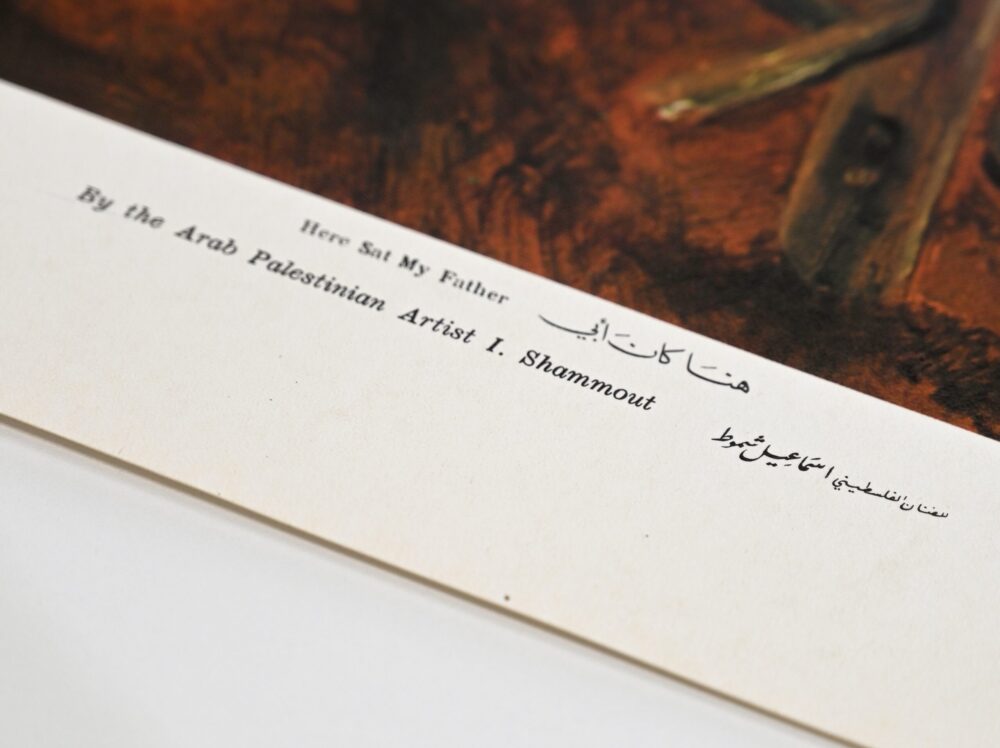 Here Sat My Father
هنا كانَ أبي
By the Arab Palestinian Artist I. Shammout
للفنان الفلسطيني اسماعيل شموط